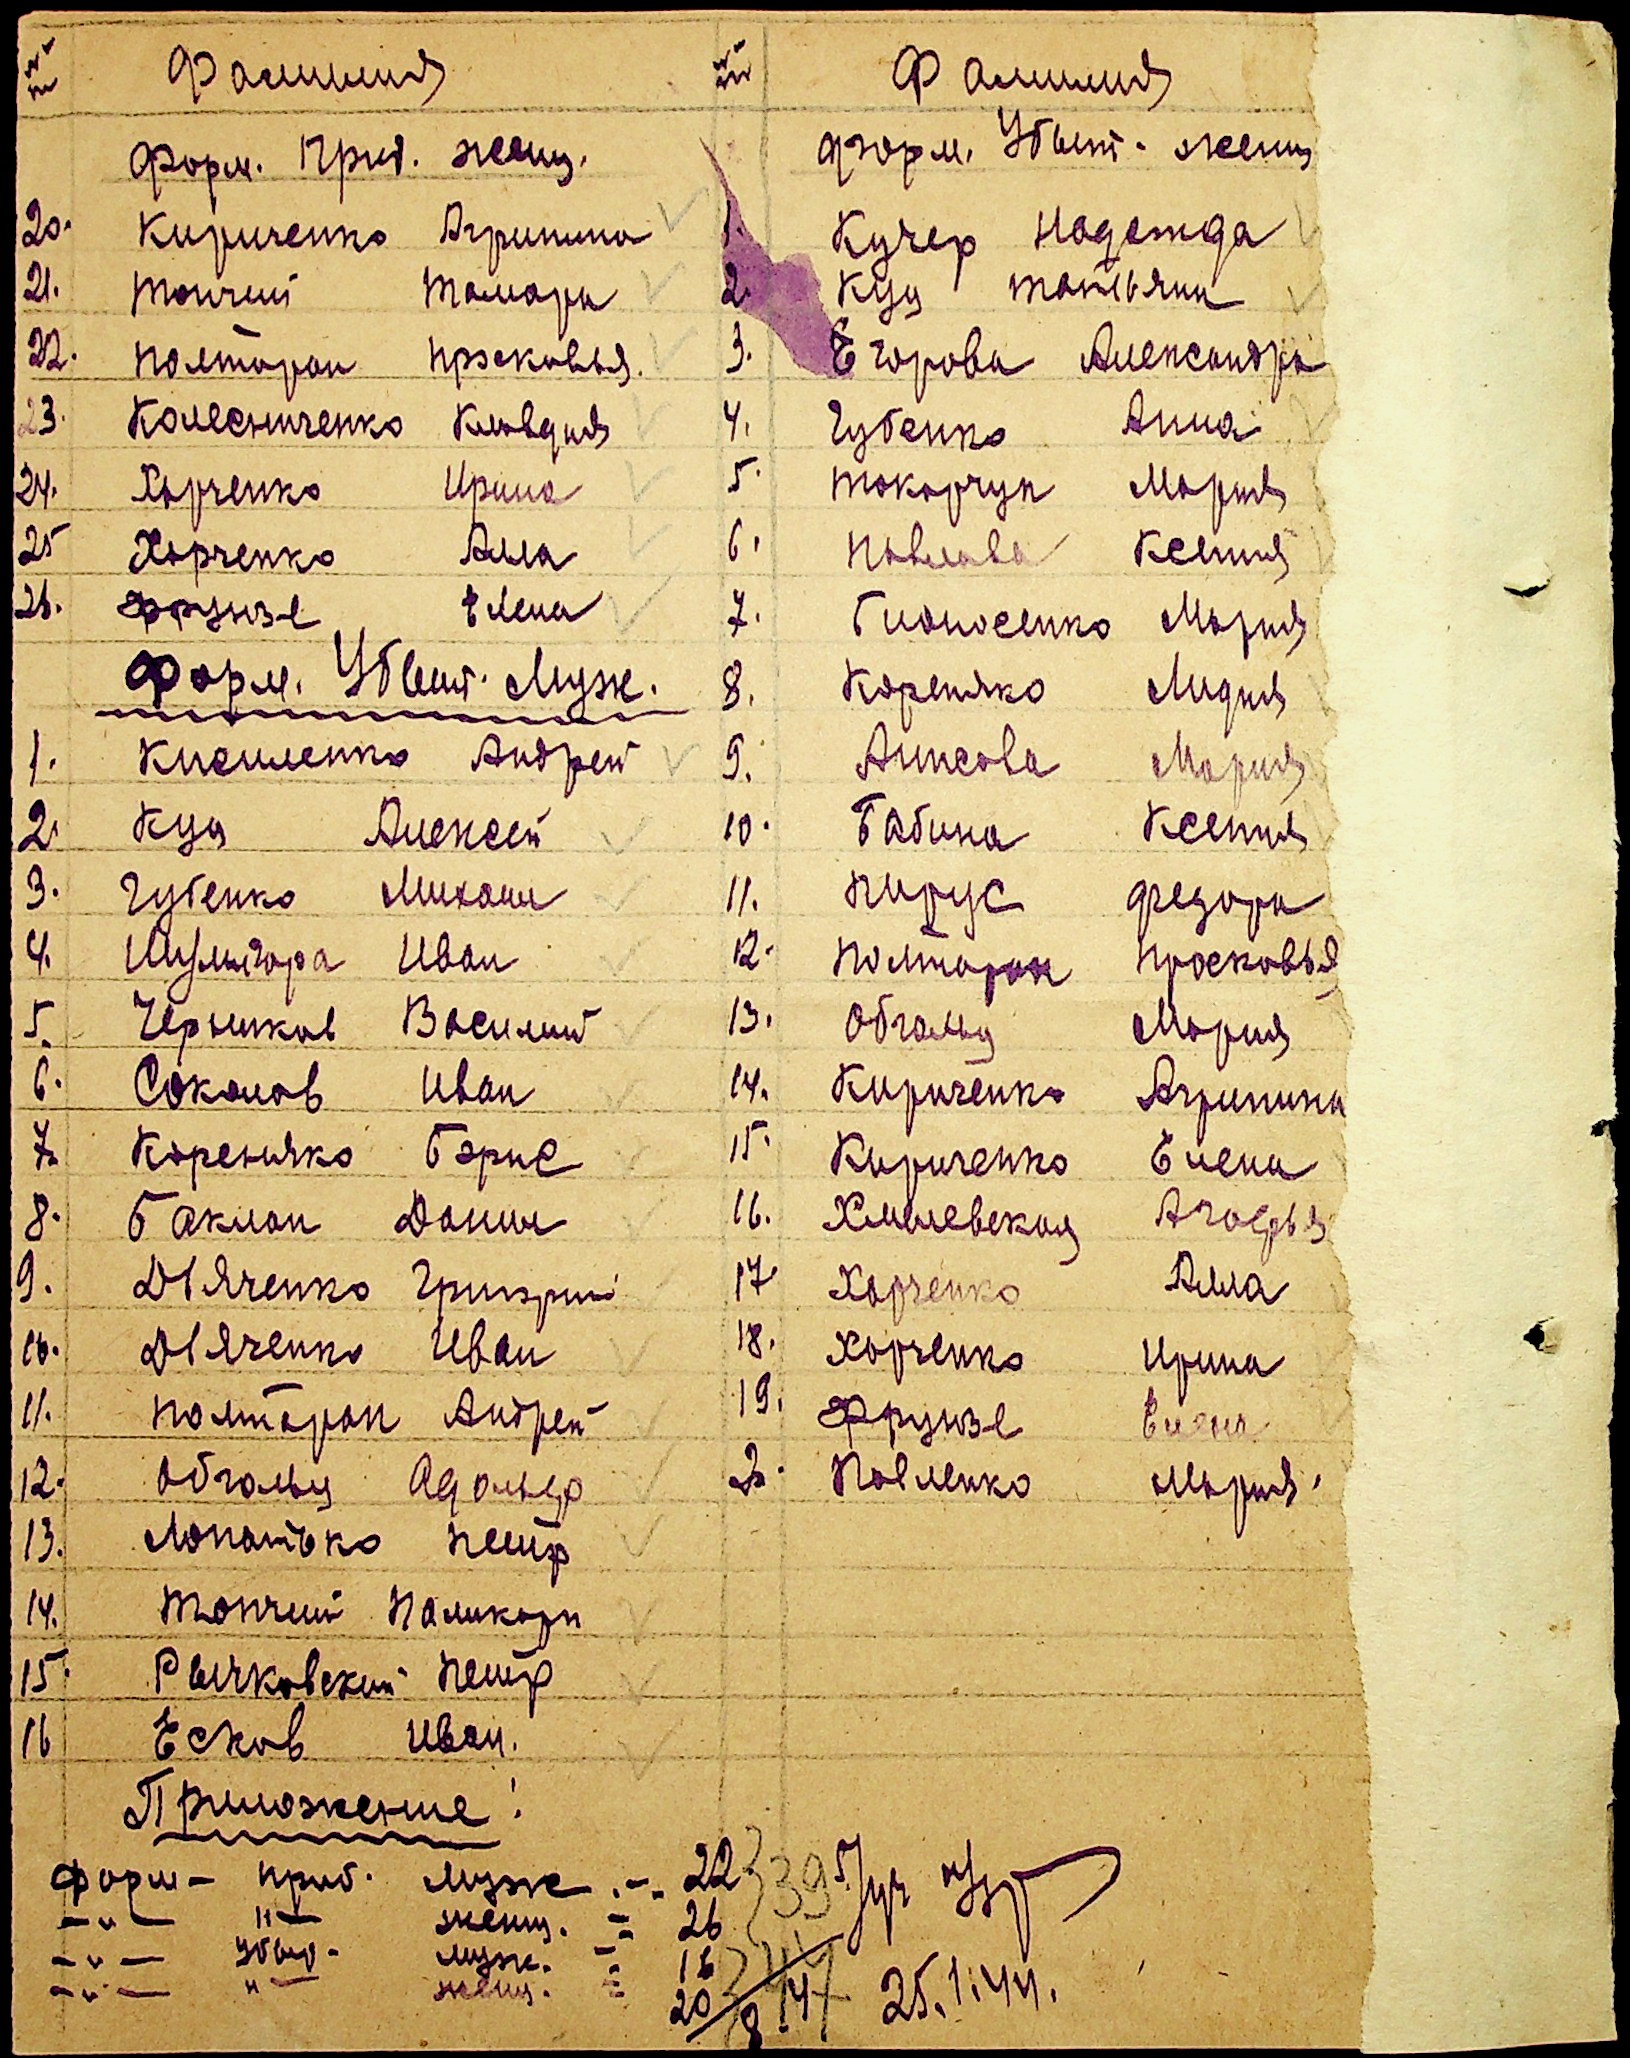 №№ пп Фамилия
Форм. Приб. женщ.
20. Кириченко Агрипина
21. Топчий Тамара
22. Полторак Прасковья
23. Колесниченко Клавдия
24. Харченко Ирина
25 Харченко Алла
26. Фрунзе Елена
Форм. Убыт. Муж.
1. Кисиленко Андрей
2. Куц Алексей
3. Губенко Михаил
4. Шулигора Иван
5. Черников Василий
6. Соколов Иван
7. Кореняко Борис
8. Баклан Данил
9. Дьяченко Григорий
10. Дьяченко Иван
11. Полторак Андрей
12. Обгольц Адольф
13. Лопатько Петр
14. Топчий Паликарп
15. Рычковский Петр
16 Есков Иван.
№№ пп Фамилия
Форм. Убыт. женщ
1. Кучер Надежда
2. Куц Татьяна
3. Егорова Александра
4. Губенко Анна
5. Токарчук Мария
6. Павлова Ксения
7. Мария
8. Кореняко Лидия
9. Анисова Мария
10. Бабина Ксения
11. Пирус Федора
12. Полторак Просковья
13. Обгольц Мария
14. Кириченко Агрипина
15. Кириченко Елена
16. Хмилевская Агафья
17 Харченко Алла
18. Харченко Ирина
19. Фрунзе Елена
20. Павленко Мария.
Приложение:
Форм – приб. муж .-. 22
–"– "– женщ. = 26
–"– Убыт. муж. = 16
–"– "– женщ. = 20
39
84
25.1.44.